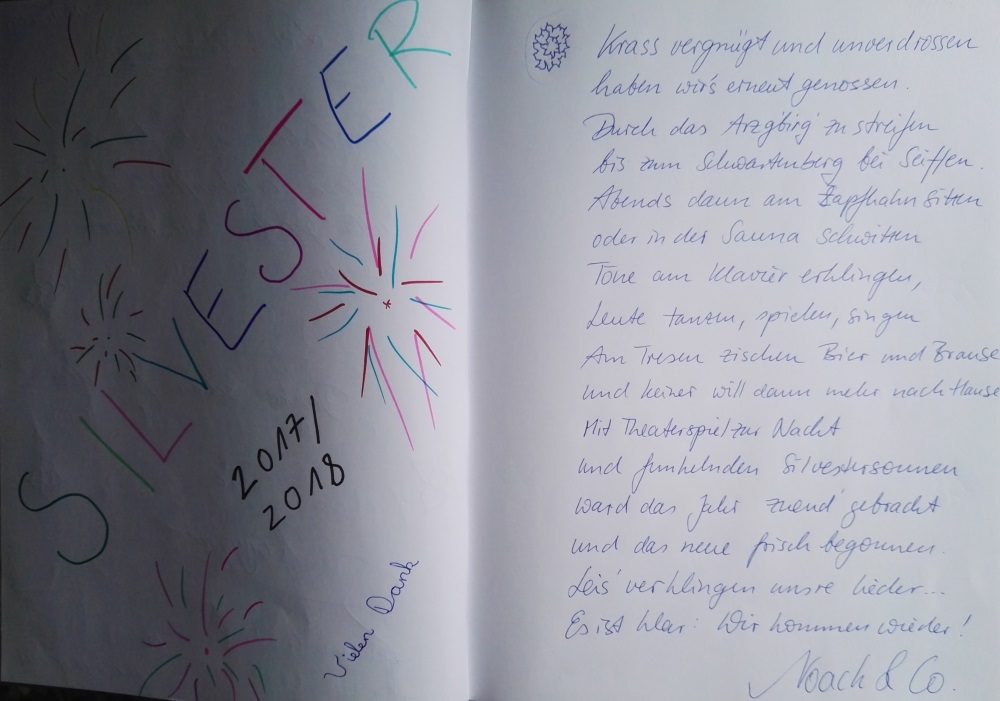 SILVESTER
2017/
2018
Vielen Dank
Krass vergnügt und unverdrossen
haben wir's erneut genossen.
Durch das Arzgbirg' zu streifen
bis zum Schwartenberg bei Seiffen.
Abends dann am Zapfhahn sitzen
oder in der Sauna schwitzen
Töne am Klavier erklingen,
Leute tanzen, spielen, singen
Am Tresen zischen Bier und Brause
und keiner will dann mehr nach Hause
Mit Theaterspiel zur Nacht
und funkelnden Silvestersonnen
ward das Jahr zuend' gebracht
und das neue frisch begonnen.
Leis' verklingen unsre Lieder...
Es ist klar: Wir kommen wieder!
Noack & Co.